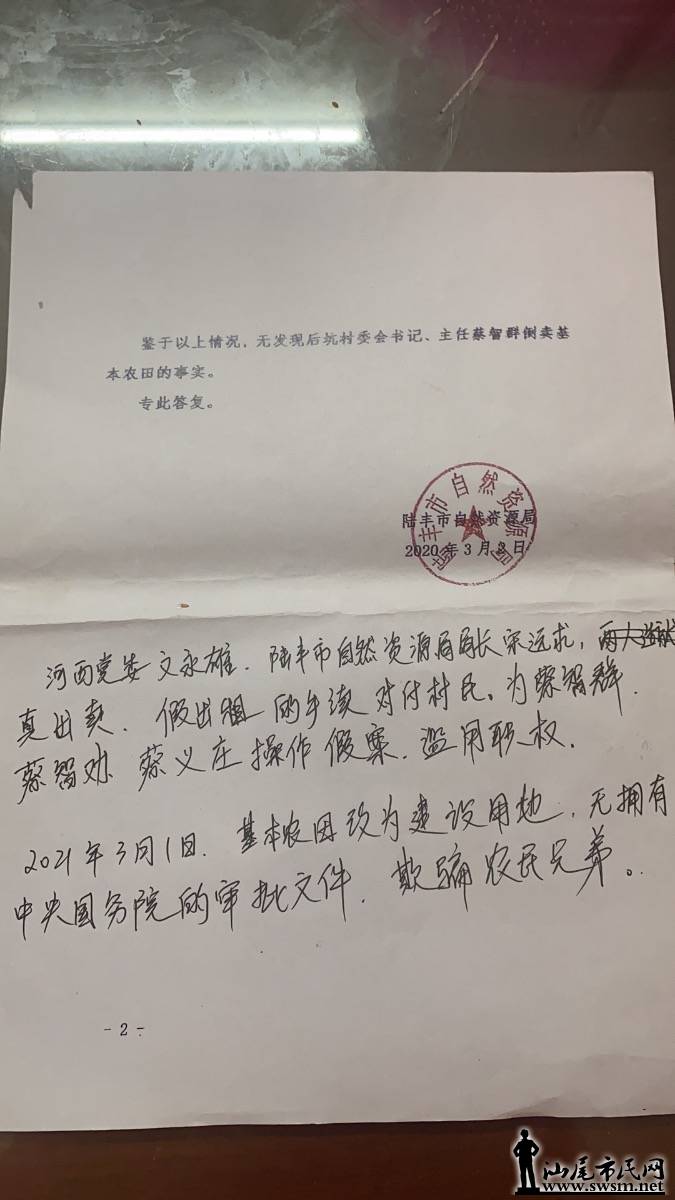 鉴于以上情况，无发现后坑村委会书记、主任蔡智群倒卖基
本农田的事实。
专此答复。
陆丰市自然资源局
陆丰市自然资源局
2020年3月3日
河西党委文永雄．陆丰市自然资源局局长宋远求，
真出卖．假出租的手续对付村民。为蔡智群．
蔡智劝 蔡义庄操作假案．滥用职权．
2021年3月1日．基本农田改为建设用地．无拥有
中央国务院的审批文件．欺骗农民兄弟。
- 2 -
汕尾市民网
www.swsm.net